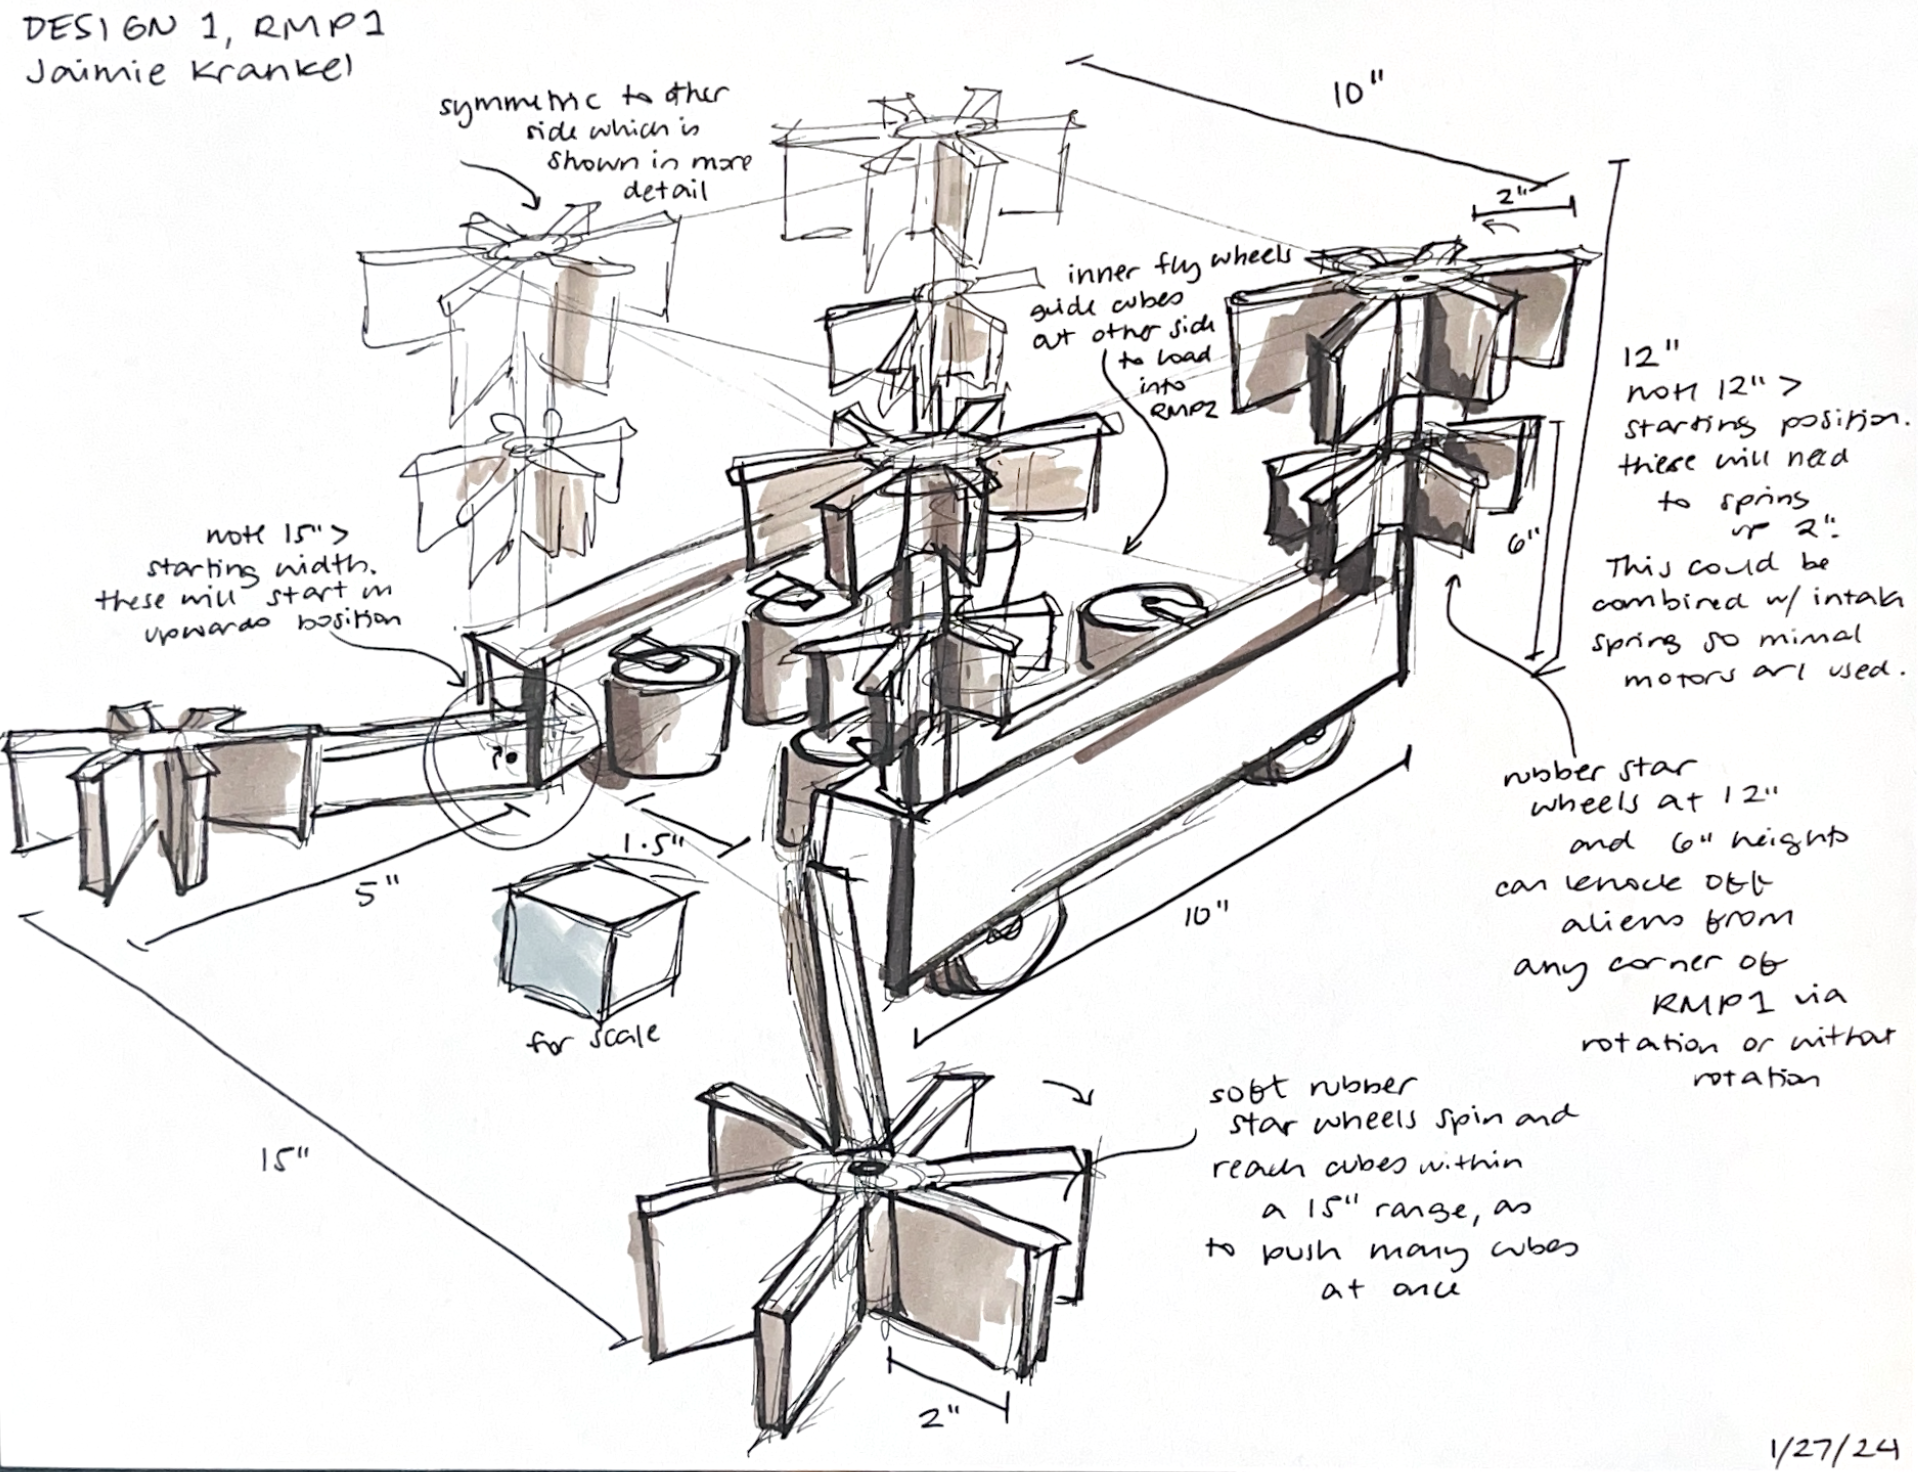 DESIGN 1, RMP1
Jaimie Krankel
symmetric to other
side which is
shown in more
detail
10"
2"
inner fly wheels
guide cubes
out other side
to load
into
RMP2
12"
note 12" >
starting position.
these will need
to spring
up 2".
This could be
combined w/ intake
spring so minimal
motors are used.
6"
note 15" >
starting width.
these will start in
upwards position
rubber star
wheels at 12"
and 6" heights
can knock off
aliens from
any corner of
RMP1 via
rotation or without
rotation
1.5"
5"
10"
for scale
15"
soft rubber
star wheels spin and
reach cubes within
a 15" range, as
to push many cubes
at once
2"
1/27/24